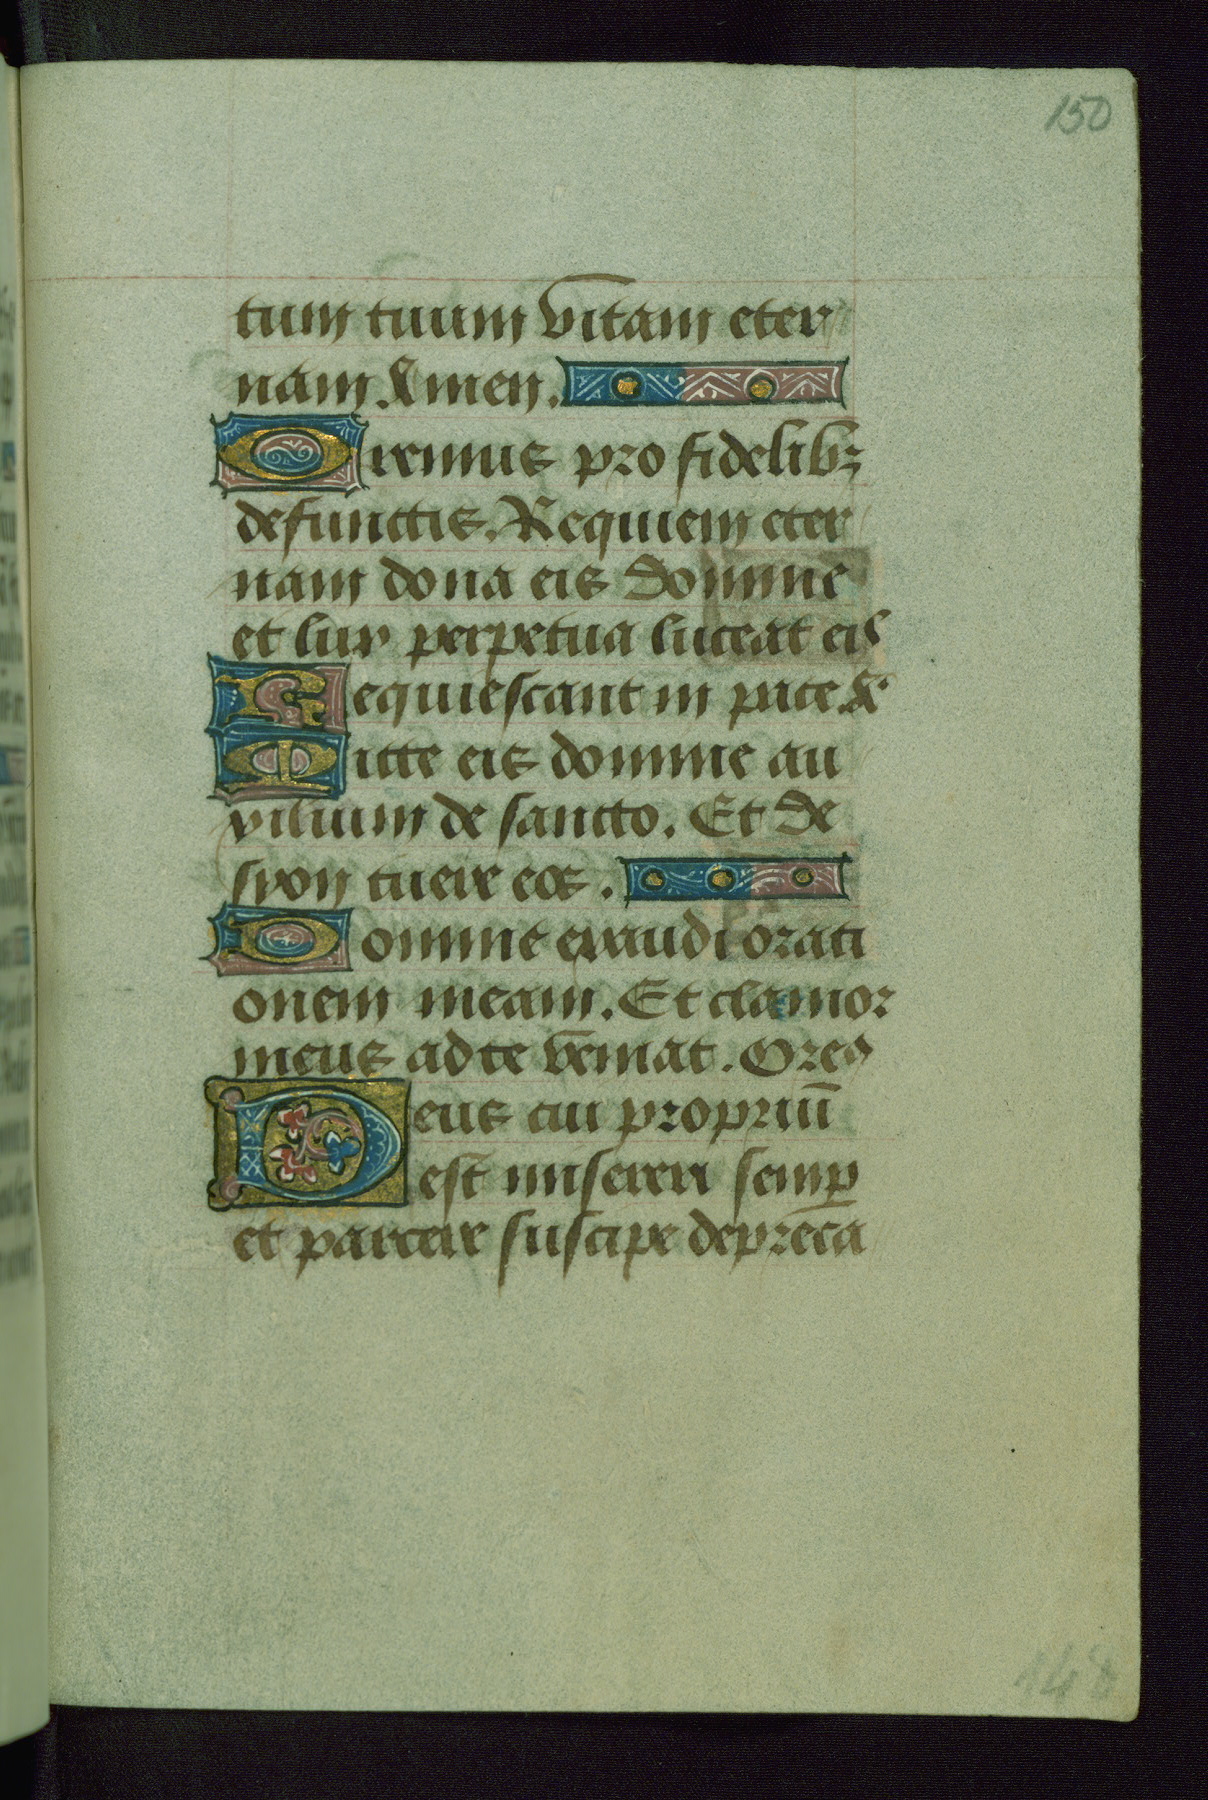 150
tum tuum vitam eter
nam. Amen.
Oremus pro fidelibꝫ
defunctis. Requiem eter
nam dona eis Domine
et lux perpetua luceat eis
Requiescant in pace. A.
Mitte eis domine au
xilium de sancto. Et de
syon tuere eos.
Domine exaudi orati
onem meam. Et clamor
meus ad te veniat. Orem9
Deus cui propriū
est misereri semꝑ
et parcere suscipe depreca
148